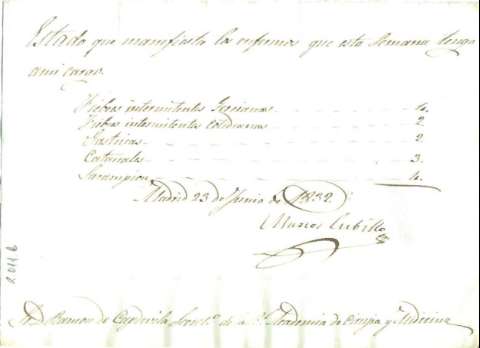 Estado que manifiesta los enfermos que esta Semana tengo
a mi cargo.
Fiebres intermitentes Tercianas 4.
Fiebres intermitentes cotidianas 2
Gastricas 2
Catarrales 3.
Sarampion 4.
Madrid 23 de Junio de 1832.
Marcos Cubillo
Sr. D. Ramon de Capdevila Secret.º de la Academia de Cirugia y Medicina